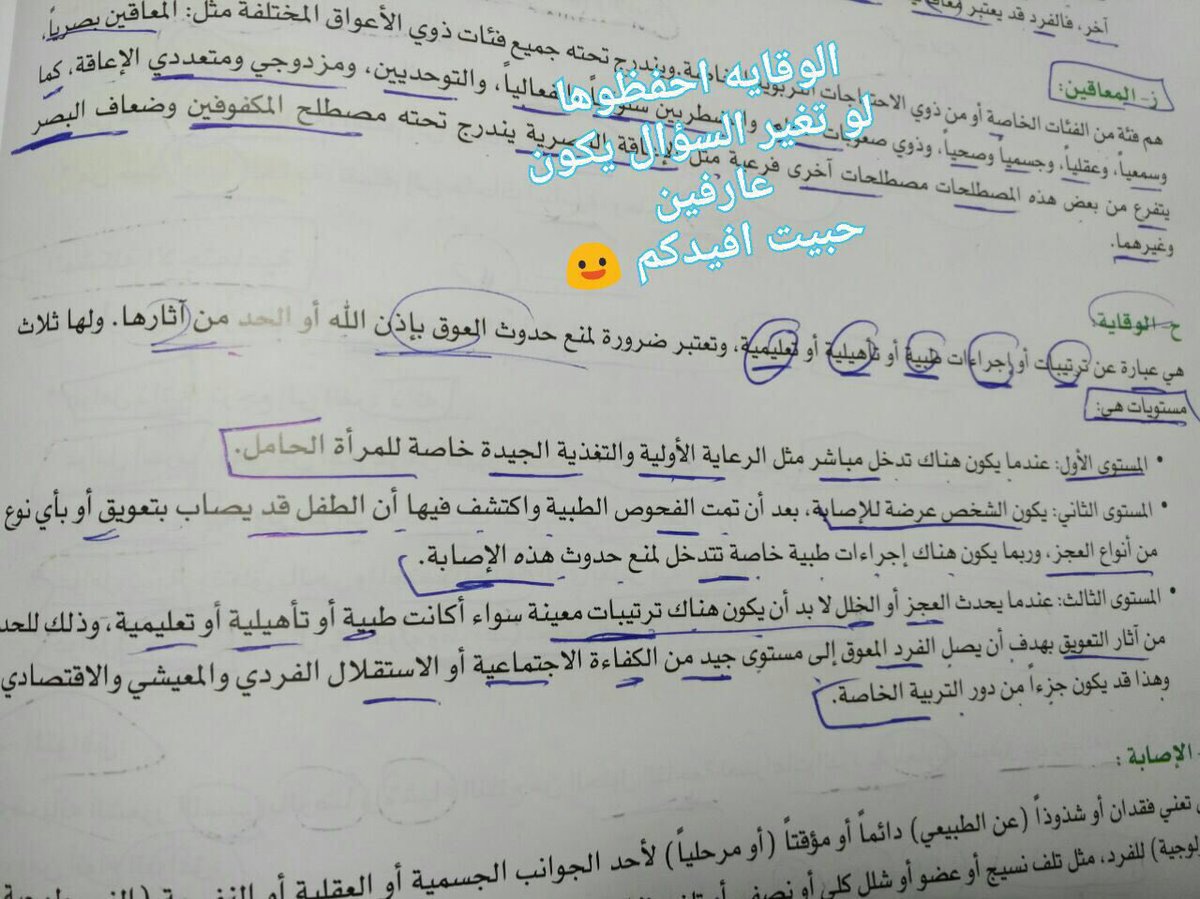 آخر، فالفرد قد يعتبر
ز- المعاقين:
هم فئة من الفئات الخاصة أو من ذوي الاحتياجات التربوية الخاصة ويندرج تحته جميع فئات ذوي الأعواق المختلفة مثل: المعاقين بصرياً،
وسمعياً، وعقلياً، وجسمياً وصحياً، وذوي صعوبات والمضطربين انفعالياً، والتوحديين، ومزدوجي ومتعددي الإعاقة، كما
يتفرع من بعض هذه المصطلحات مصطلحات آخرى فرعية مثل الإعاقة البصرية يندرج تحته مصطلح المكفوفين وضعاف البصر
وغيرهما.
الوقايه احفظوها
لو تغير السؤال يكون
عارفين
حبيت افيدكم 😃
ح- الوقاية:
هي عبارة عن ترتيبات أو إجراءات طبية أو تأهيلية أو تعليمية، وتعتبر ضرورة لمنع حدوث العوق بإذن الله أو الحد من آثارها. ولها ثلاث
مستويات هي:
• المستوى الأول: عندما يكون هناك تدخل مباشر مثل الرعاية الأولية والتغذية الجيدة خاصة للمرأة الحامل.
• المستوى الثاني: يكون الشخص عرضة للإصابة، بعد أن تمت الفحوص الطبية واكتشف فيها أن الطفل قد يصاب بتعويق أو بأي نوع
من أنواع العجز، وربما يكون هناك إجراءات طبية خاصة تتدخل لمنع حدوث هذه الإصابة.
• المستوى الثالث: عندما يحدث العجز أو الخلل لا بد أن يكون هناك ترتيبات معينة سواء أكانت طبية أو تأهيلية أو تعليمية، وذلك للحد
من آثار التعويق بهدف أن يصل الفرد المعوق إلى مستوى جيد من الكفاءة الاجتماعية أو الاستقلال الفردي والمعيشي والاقتصادي
وهذا قد يكون جزءاً من دور التربية الخاصة.
الإصابة :
تعني فقدان أو شذوذاً (عن الطبيعي) دائماً أو مؤقتاً (أو مرحلياً) لأحد الجوانب الجسمية أو العقلية أو
للفرد، مثل تلف نسيج أو عضو أو شلل كلي أو نصفي أو